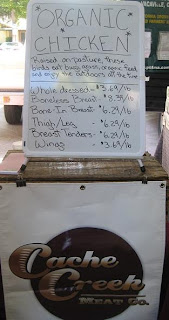 ORGANIC
CHICKEN
Raised on pasture, these
birds eat bugs, grass, organic feed
and enjoy the outdoors all the time
Whole dressed - $3.69/lb
Boneless Breast - $8.39/lb
Bone-In Breast - $6.29/lb
Thigh/Leg - $6.29/lb
Breast Tenders - $6.29/lb
Wings - $3.69/lb
Cache
Creek
MEAT CO.